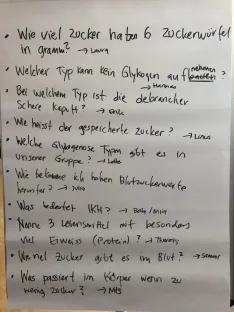 • Wie viel Zucker haben 6 Zuckerwürfel
in gramm? → Laura
• Welcher Typ kann kein Glykogen aufnehmen ?
→ Hannes
• Bei welchem Typ ist die debrancher
Schere kaputt? →
• Wie heisst der gespeicherte Zucker? → Linus
• Welche Glykogenose Typen gibt es in
unserer Gruppe? → Lotte
• Wie bekomme ich hohen Blutzuckerwerte
herunter? →
• Was bedeutet IKH? →
• Nenne 3 Lebensmittel mit besonders
viel Eiweiss (Protein)? →
• Wo viel Zucker gibt es im Blut? →
• Was passiert im Körper wenn zu
wenig Zucker? → Nils